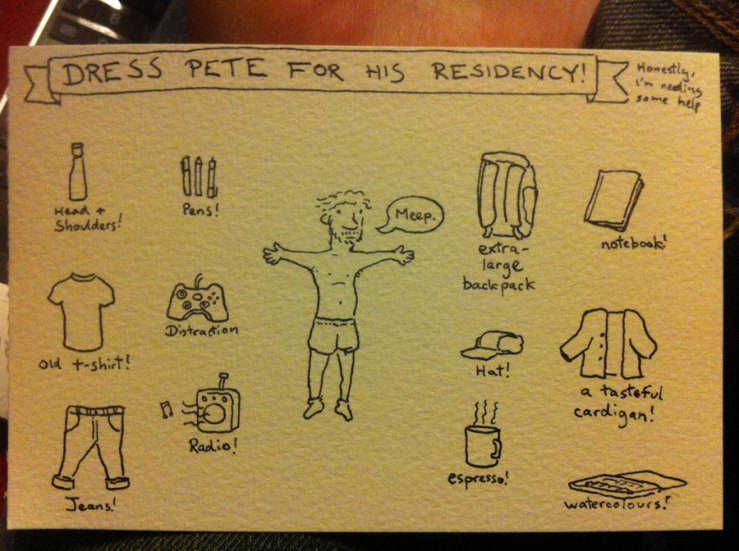 DRESS PETE FOR HIS RESIDENCY!
Honestly,
i'm needing
some help
Head +
Shoulders!
Pens!
Meep.
extra-
large
backpack
notebook!
old t-shirt!
Distraction
Hat!
a tasteful
cardigan!
Jeans!
Radio!
espresso!
watercolours!